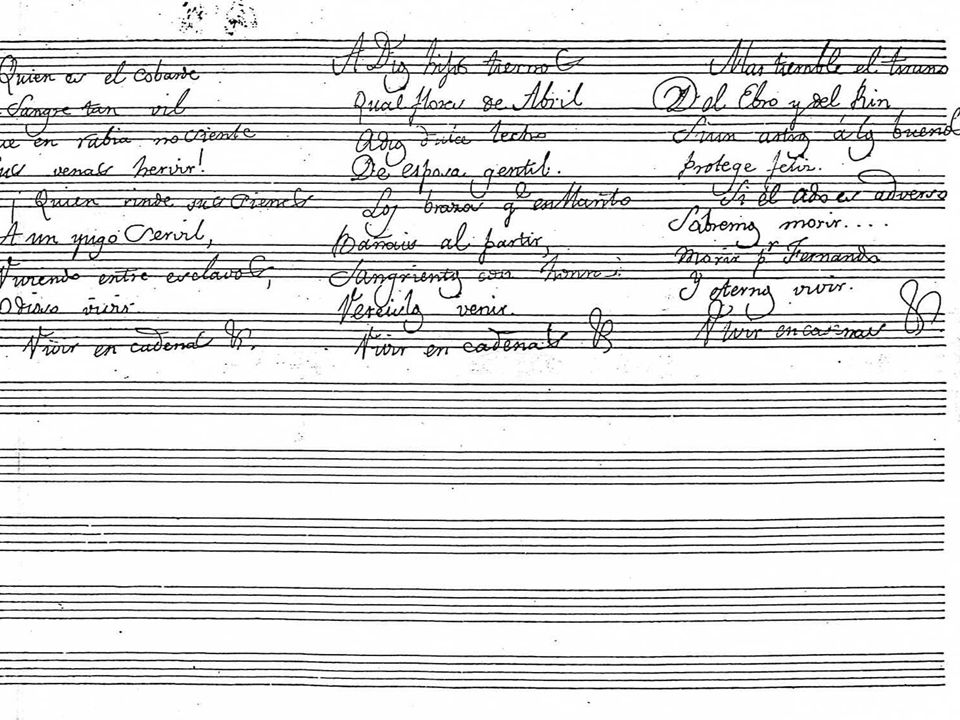 Quien es el cobarde
Sangre tan vil
ue en rabia no siente
us venas hervir!
¡Quien rinde sus sienes
A un yugo servil,
Viviendo entre esclavos,
Odioso vivir
Vivir en cadenas &.
A Dios hijos tiernos
Qual flores de Abril
Adios dulce lecho
De esposa gentil.
Los brazos q.e en llanto
Bañais al partir,
Sangrientos con honor
Vereislos venir.
Vivir en cadenas &
Mas tiemble el tirano
Del Ebro y del Rin,
Si un astro á los buenos
protege feliz.
Si el ado es adverso
Sabremos morir....
Morir p.r Fernando
Y eternos vivir.
Vivir en cadenas &